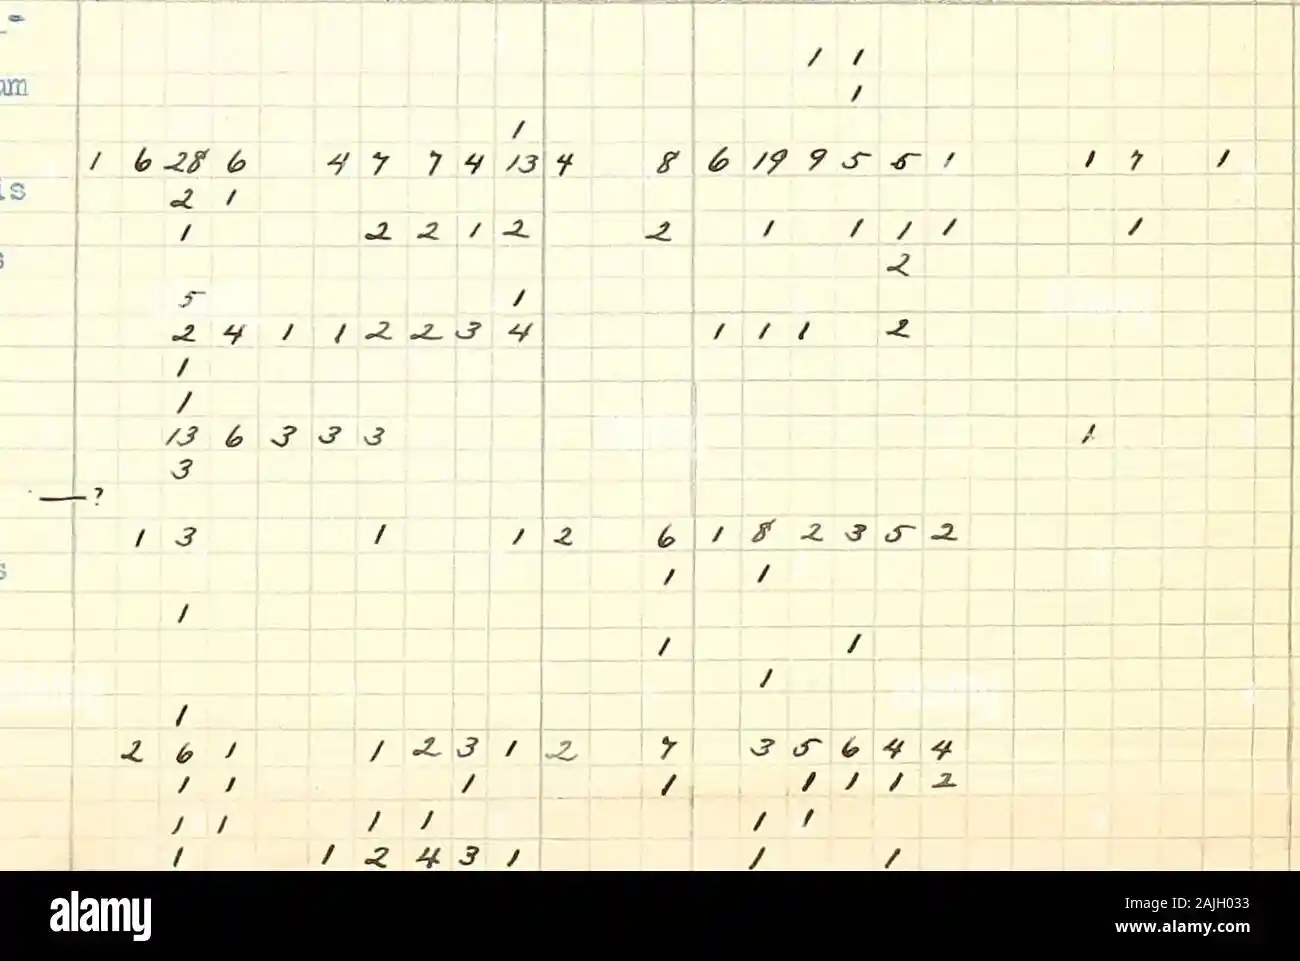 1 1
um 1
1
1 6 28 6 4 7 7 4 13 4 8 6 19 9 5 5 1 1 7 1
is 2 1
1 2 2 1 2 2 1 1 1 1 1
s 2
5 1
2 4 1 1 2 2 3 4 1 1 1 2
1
1
13 6 3 3 3 1
3
—?
1 3 1 1 2 6 1 8 2 3 5 2
s 1 1
1
1 1
1
1
2 6 1 1 2 3 1 2 7 3 5 6 4 4
1 1 1 1 1 1 1 2
1 1 1 1 1 1
1 1 2 4 3 1 1 1
alamy
Image ID: 2AJH033
www.alamy.com